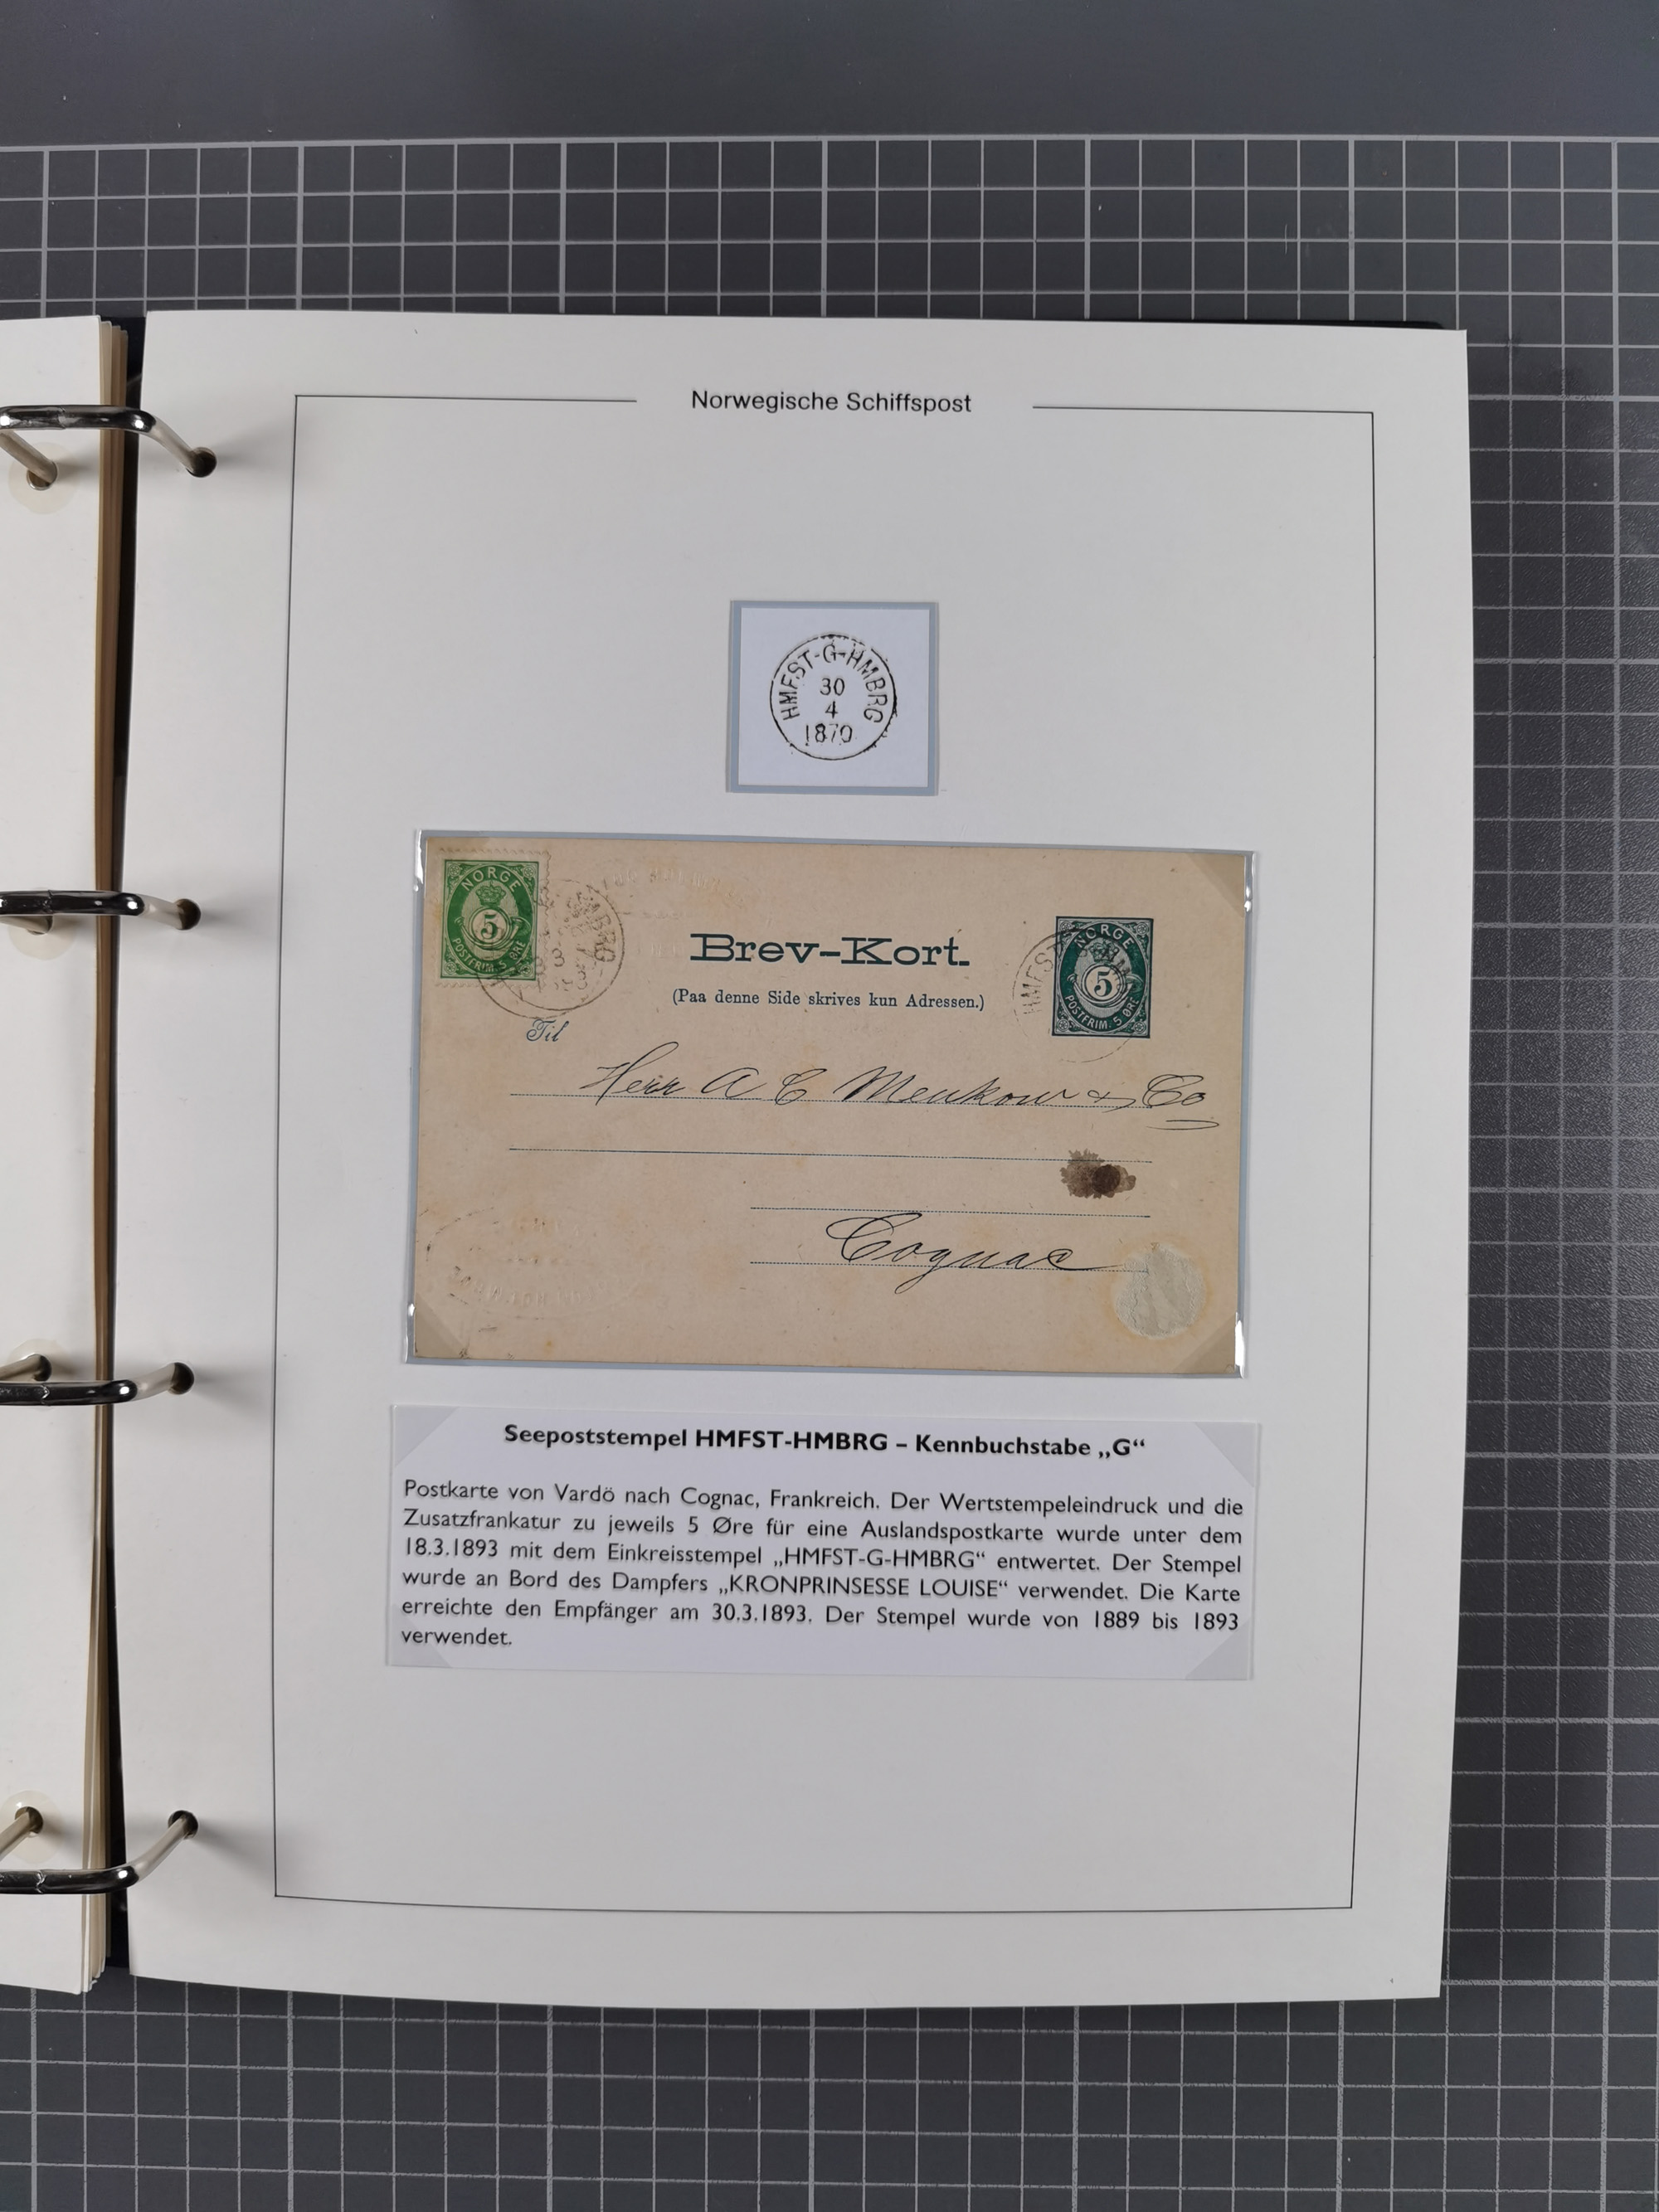 Norwegische Schiffspost
HMFST-G-HMBRG
30
4
1870
NORGE
5
POSTFRIM. 5 ØRE
Brev-Kort.
(Paa denne Side skrives kun Adressen.)
NORGE
5
POSTFRIM. 5 ØRE
HMFST
Til
Herr A C Meukow & Co
Cognac
Seepoststempel HMFST-HMBRG – Kennbuchstabe „G“
Postkarte von Vardö nach Cognac, Frankreich. Der Wertstempeleindruck und die
Zusatzfrankatur zu jeweils 5 Øre für eine Auslandspostkarte wurde unter dem
18.3.1893 mit dem Einkreisstempel „HMFST-G-HMBRG“ entwertet. Der Stempel
wurde an Bord des Dampfers „KRONPRINSESSE LOUISE“ verwendet. Die Karte
erreichte den Empfänger am 30.3.1893. Der Stempel wurde von 1889 bis 1893
verwendet.